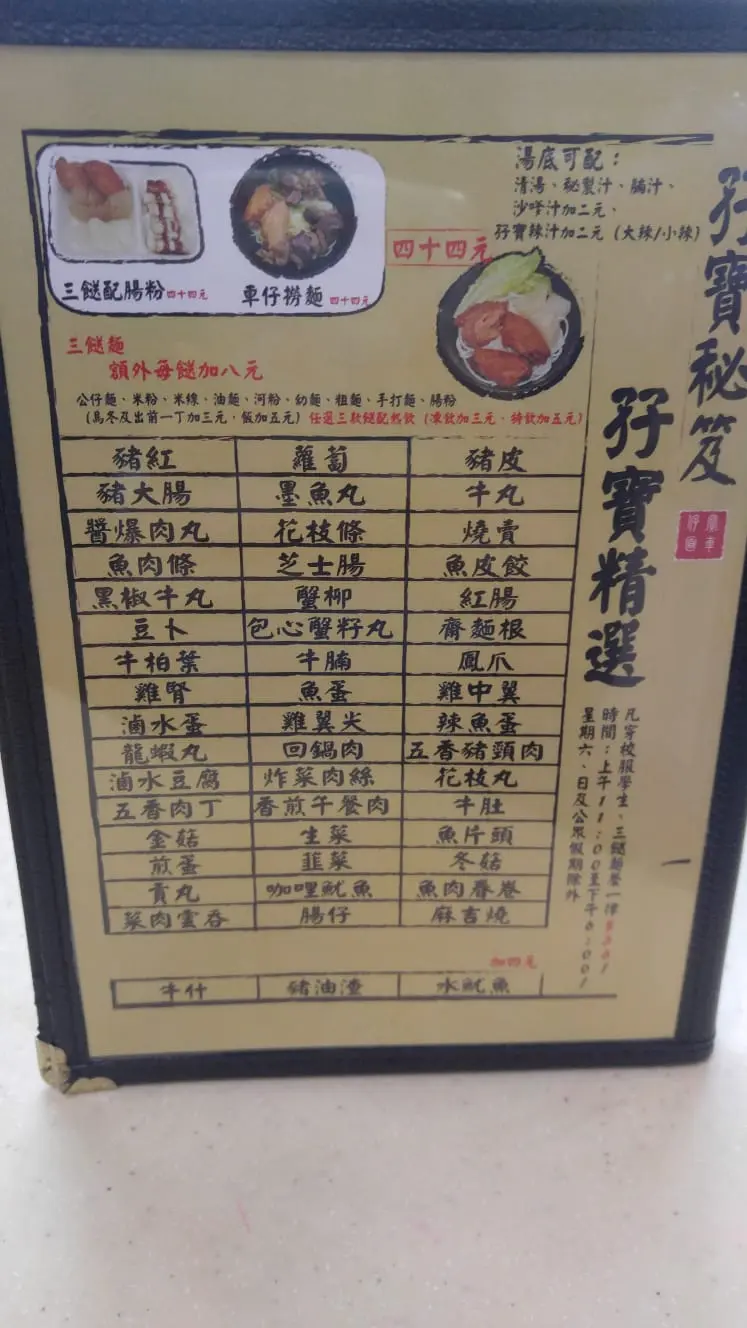 孖寶秘笈
孖寶精選
湯底可配：
清湯、秘製汁、腩汁、
沙嗲汁加二元、
孖寶辣汁加二元（大辣/小辣）
四十四元
三餸配腸粉 四十四元
車仔撈麵 四十四元
三餸麵
額外每餸加八元
公仔麵、米粉、米線、油麵、河粉、幼麵、粗麵、手打麵、腸粉
（烏冬及出前一丁加三元．飯加五元）任選三款餸配熱飲（凍飲加三元．特飲加五元）
豬紅 蘿蔔 豬皮
豬大腸 墨魚丸 牛丸
醬爆肉丸 花枝條 燒賣
魚肉條 芝士腸 魚皮餃
黑椒牛丸 蟹柳 紅腸
豆卜 包心蟹籽丸 齋麵根
牛柏葉 牛腩 鳳爪
雞腎 魚蛋 雞中翼
滷水蛋 雞翼尖 辣魚蛋
龍蝦丸 回鍋肉 五香豬頸肉
滷水豆腐 炸菜肉絲 花枝丸
五香肉丁 香煎午餐肉 牛肚
金菇 生菜 魚片頭
煎蛋 韮菜 冬菇
貢丸 咖哩魷魚 魚肉春卷
菜肉雲吞 腸仔 麻吉燒
加四元
牛什 豬油渣 水魷魚
凡穿校服學生、三餸麵餐一律
時間：上午11:00至下午6:00!
星期六、日及公眾假期除外